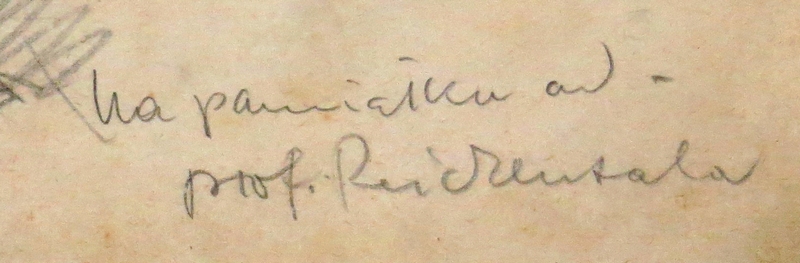 Na pamiątkę od -
prof. Reichentala